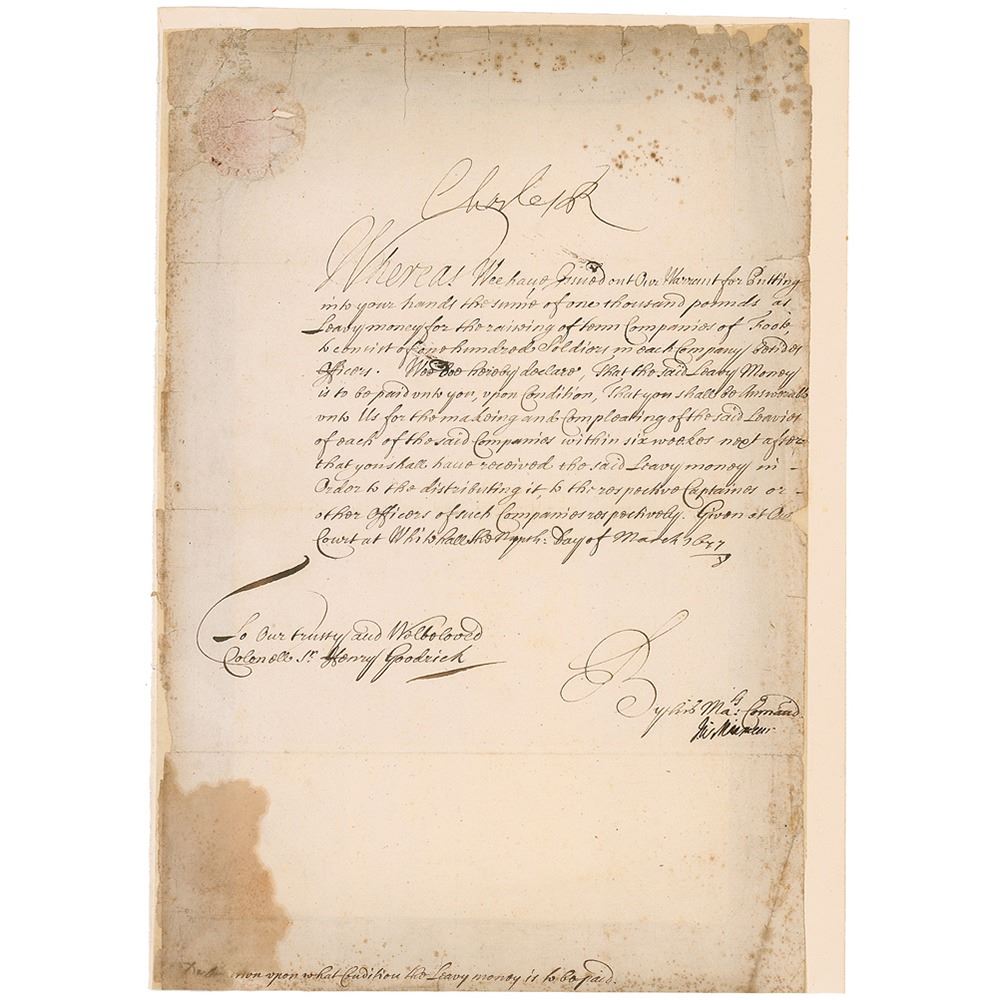 Charles R
Whereas Wee have Issued out Our Warrant for Putting
into your hands the sume of one thousand pounds as
Leavy money for the raising of tenn Companies of Foote,
to consist of one hundred Soldiers in each Company besides
Officers. Wee doe hereby declare, That the said Leavy Money
is to be paid vnto you, vpon Condition, That you shall be Answerable
vnto Us for the makeing and Compleating of the said Leavies
of each of the said Companies within six weekes next after
that you shall have received the said Leavy money in -
Order to the distributing it, to the respective Captaines or -
other Officers of such Companies respectively. Given at Our
Court at Whitehall the Day of March 1677
To Our trusty and Welbeloved
Colonell Sr. Henry Goodrick
By his Mats: Comand
upon what Condition the Leavy money is to be paid.